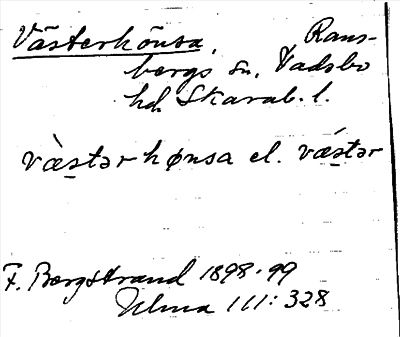 Västerhönsa, Rans-
bergs sn, Vadsbo
hd Skarab. l.
væ̀stərhønsa el. vǽstər
F. Bergstrand 1898-99
Ulma 111: 328